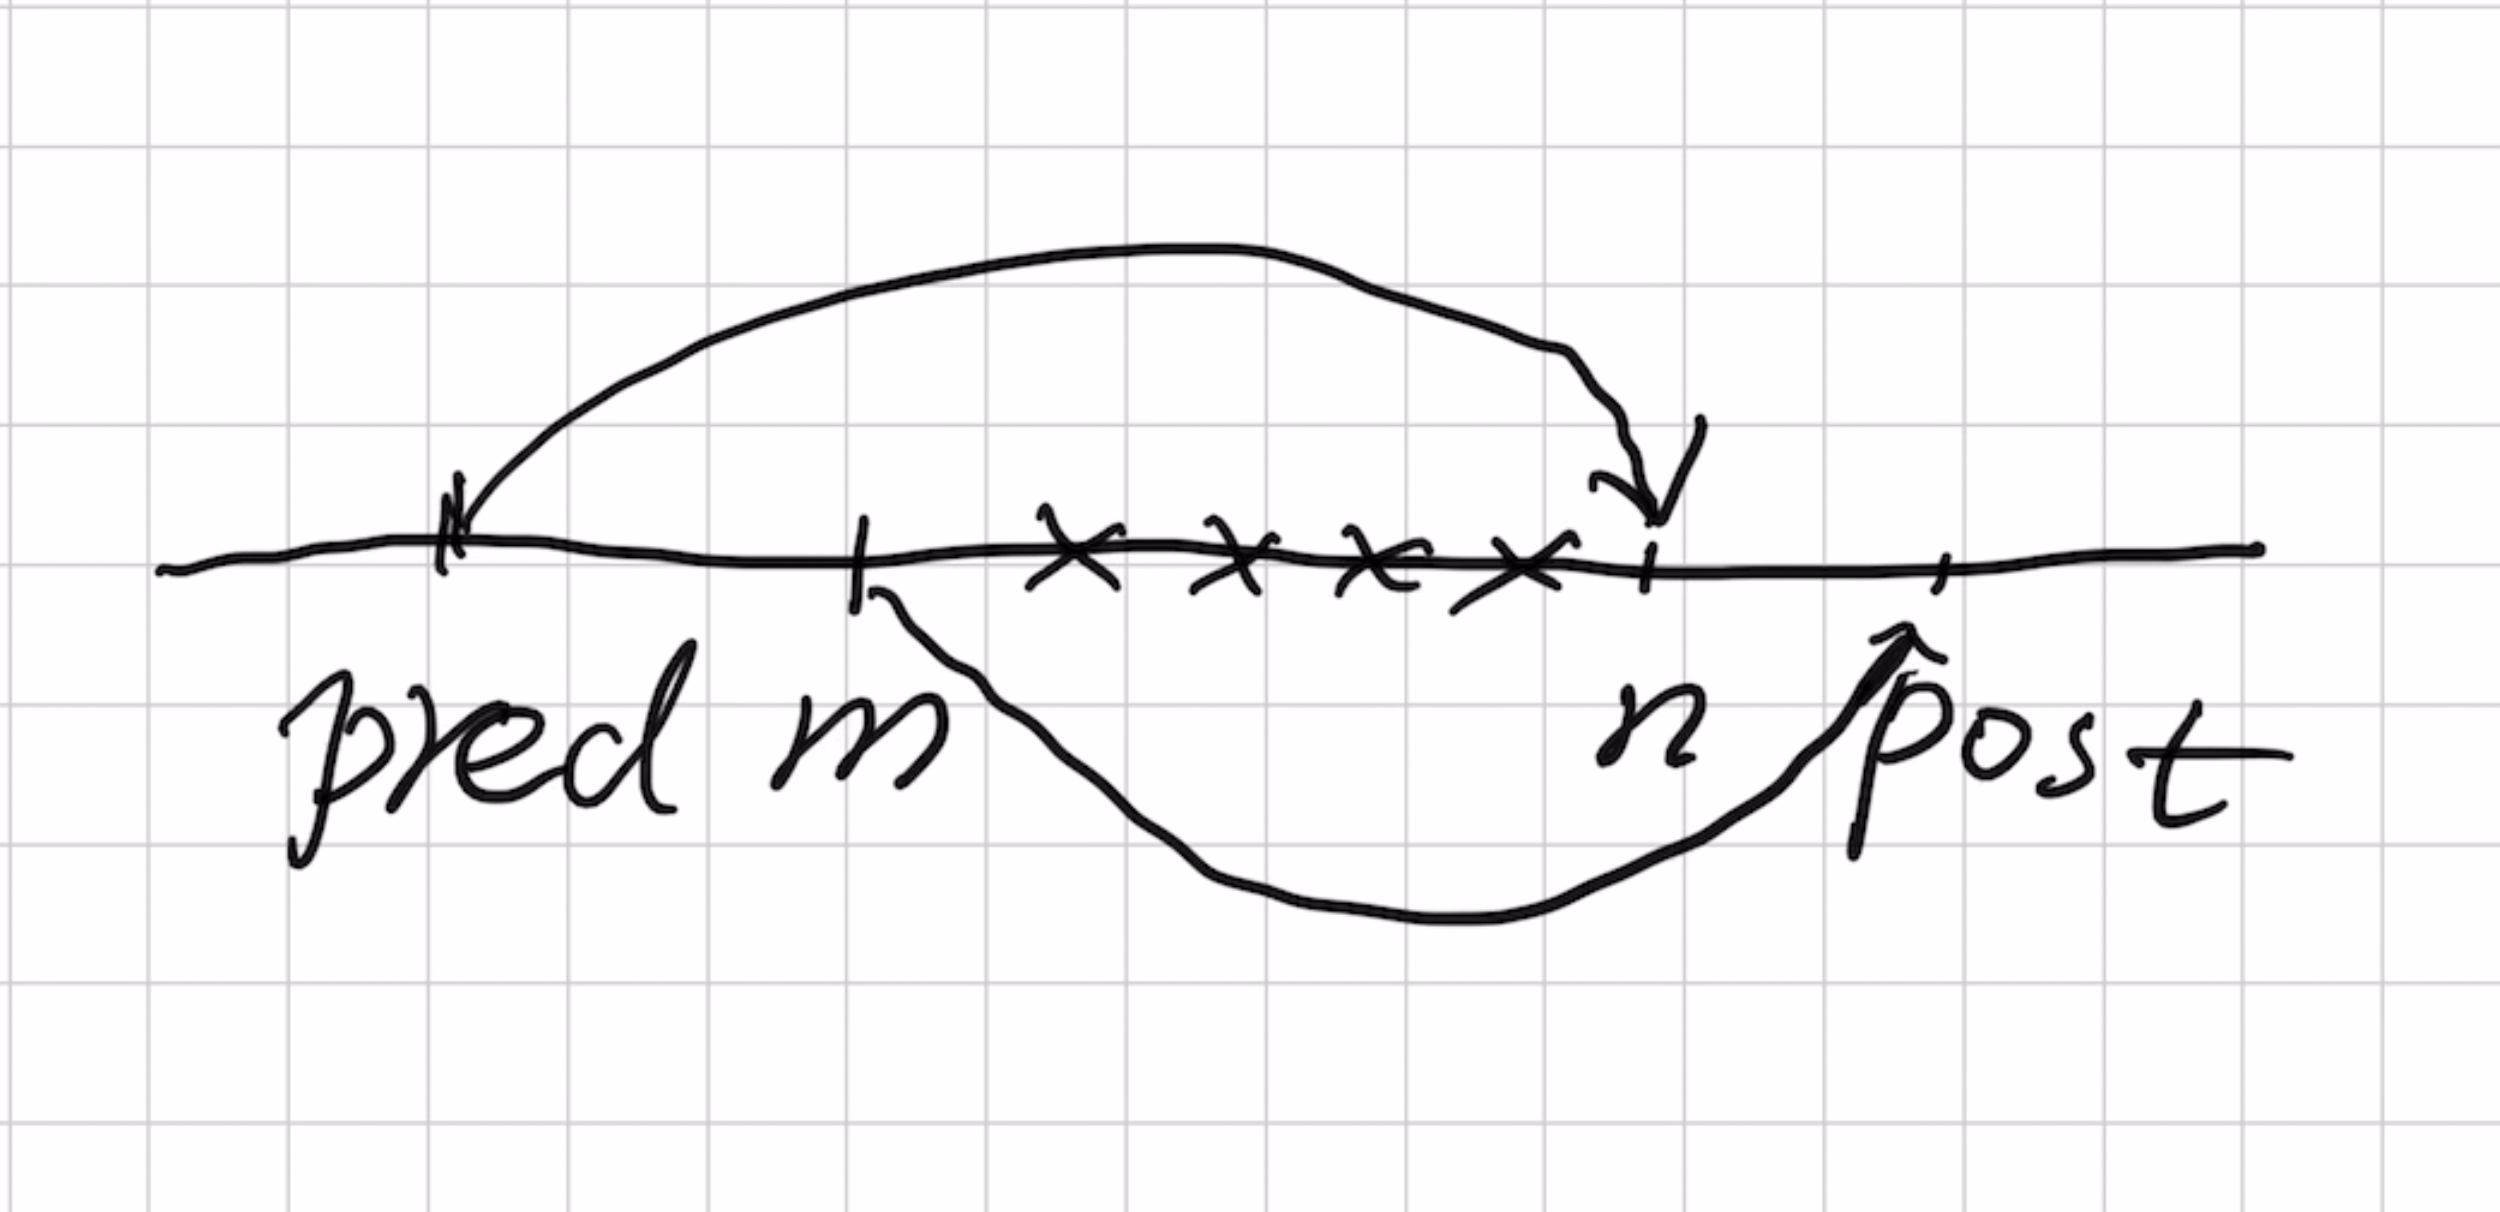 pred m n post